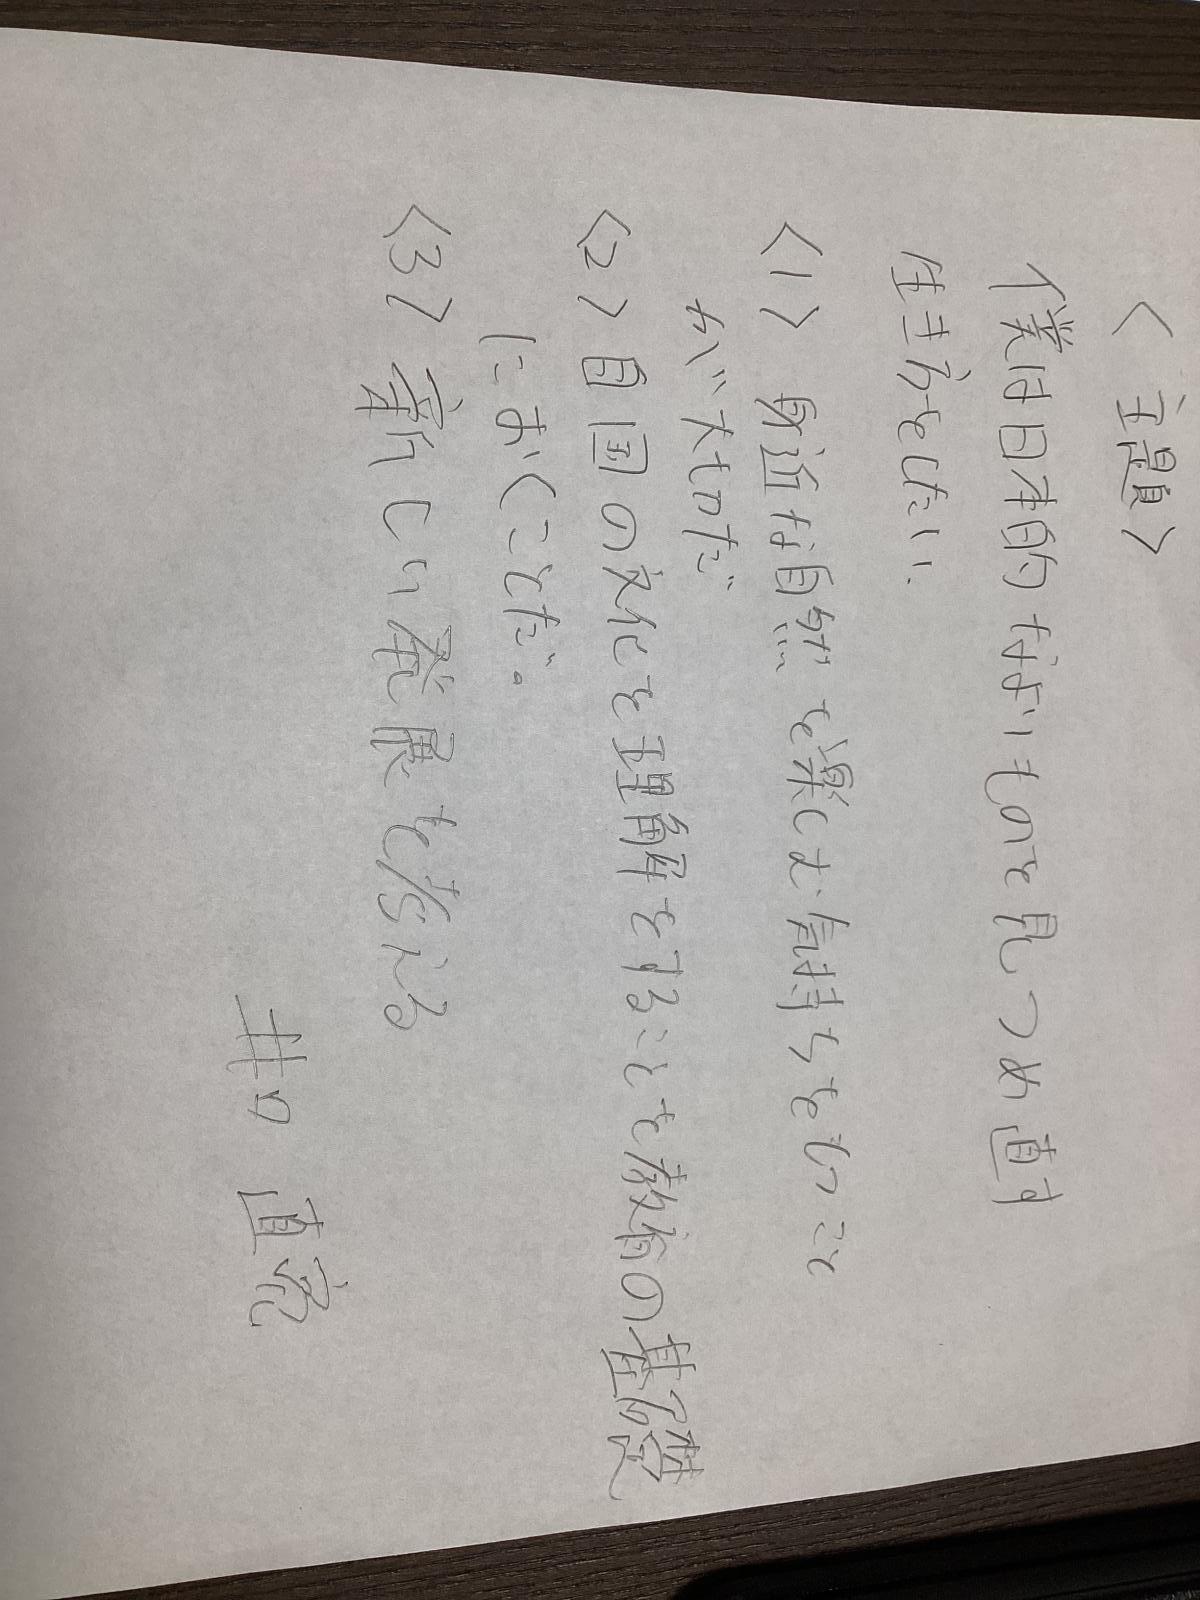 <主題>
僕は日本的なよいものを見つめ直す
生き方をしたい.
<1> 身近な自然を楽しむ気持ちをもつこと
が大切だ
<2> 自国の文化を理解をすることを教育の基礎
におくことだ。
<3> 新しい発展を考える
井口 直